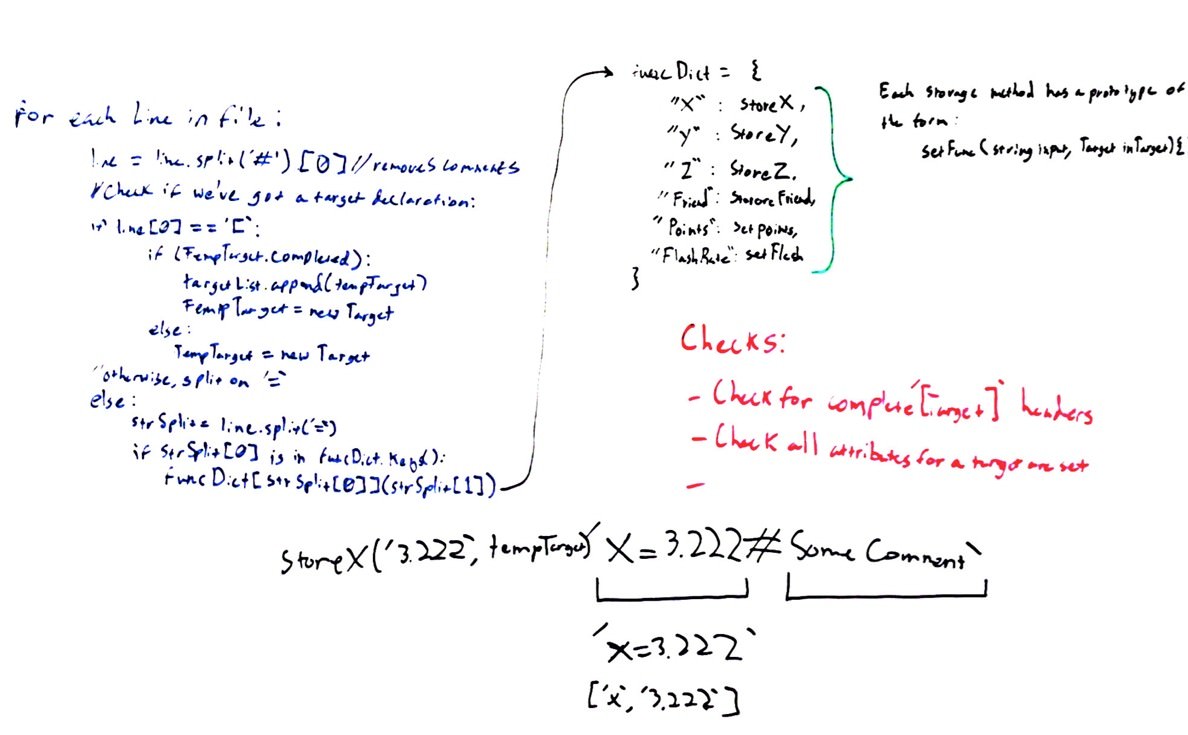 For each Line in file:
line = line.split('#')[0]//removes comments
//Check if we've got a target declaration:
if line[0] == '[':
if (TempTarget.completed):
targetList.append(tempTarget)
TempTarget = new Target
else:
TempTarget = new Target
"otherwise, split on '='
else:
strSplit = line.split('=')
if strSplit[0] is in funcDict.Keys():
FuncDict[strSplit[0]](strSplit[1])
funcDict = {
"X" : StoreX,
"y" : StoreY,
"Z" : StoreZ,
"Friend": StoreFriend,
"Points": Setpoints,
"FlashRate": setFlash
}
Each storage method has a prototype of
the form:
setFunc(string input, Target inTarget){
Checks:
- Check for complete '[Target]' headers
- Check all attributes for a target are set
-
StoreX('3.222', tempTarget) 'X=3.222#Some Comment'
'X=3.222'
['x', '3.222']